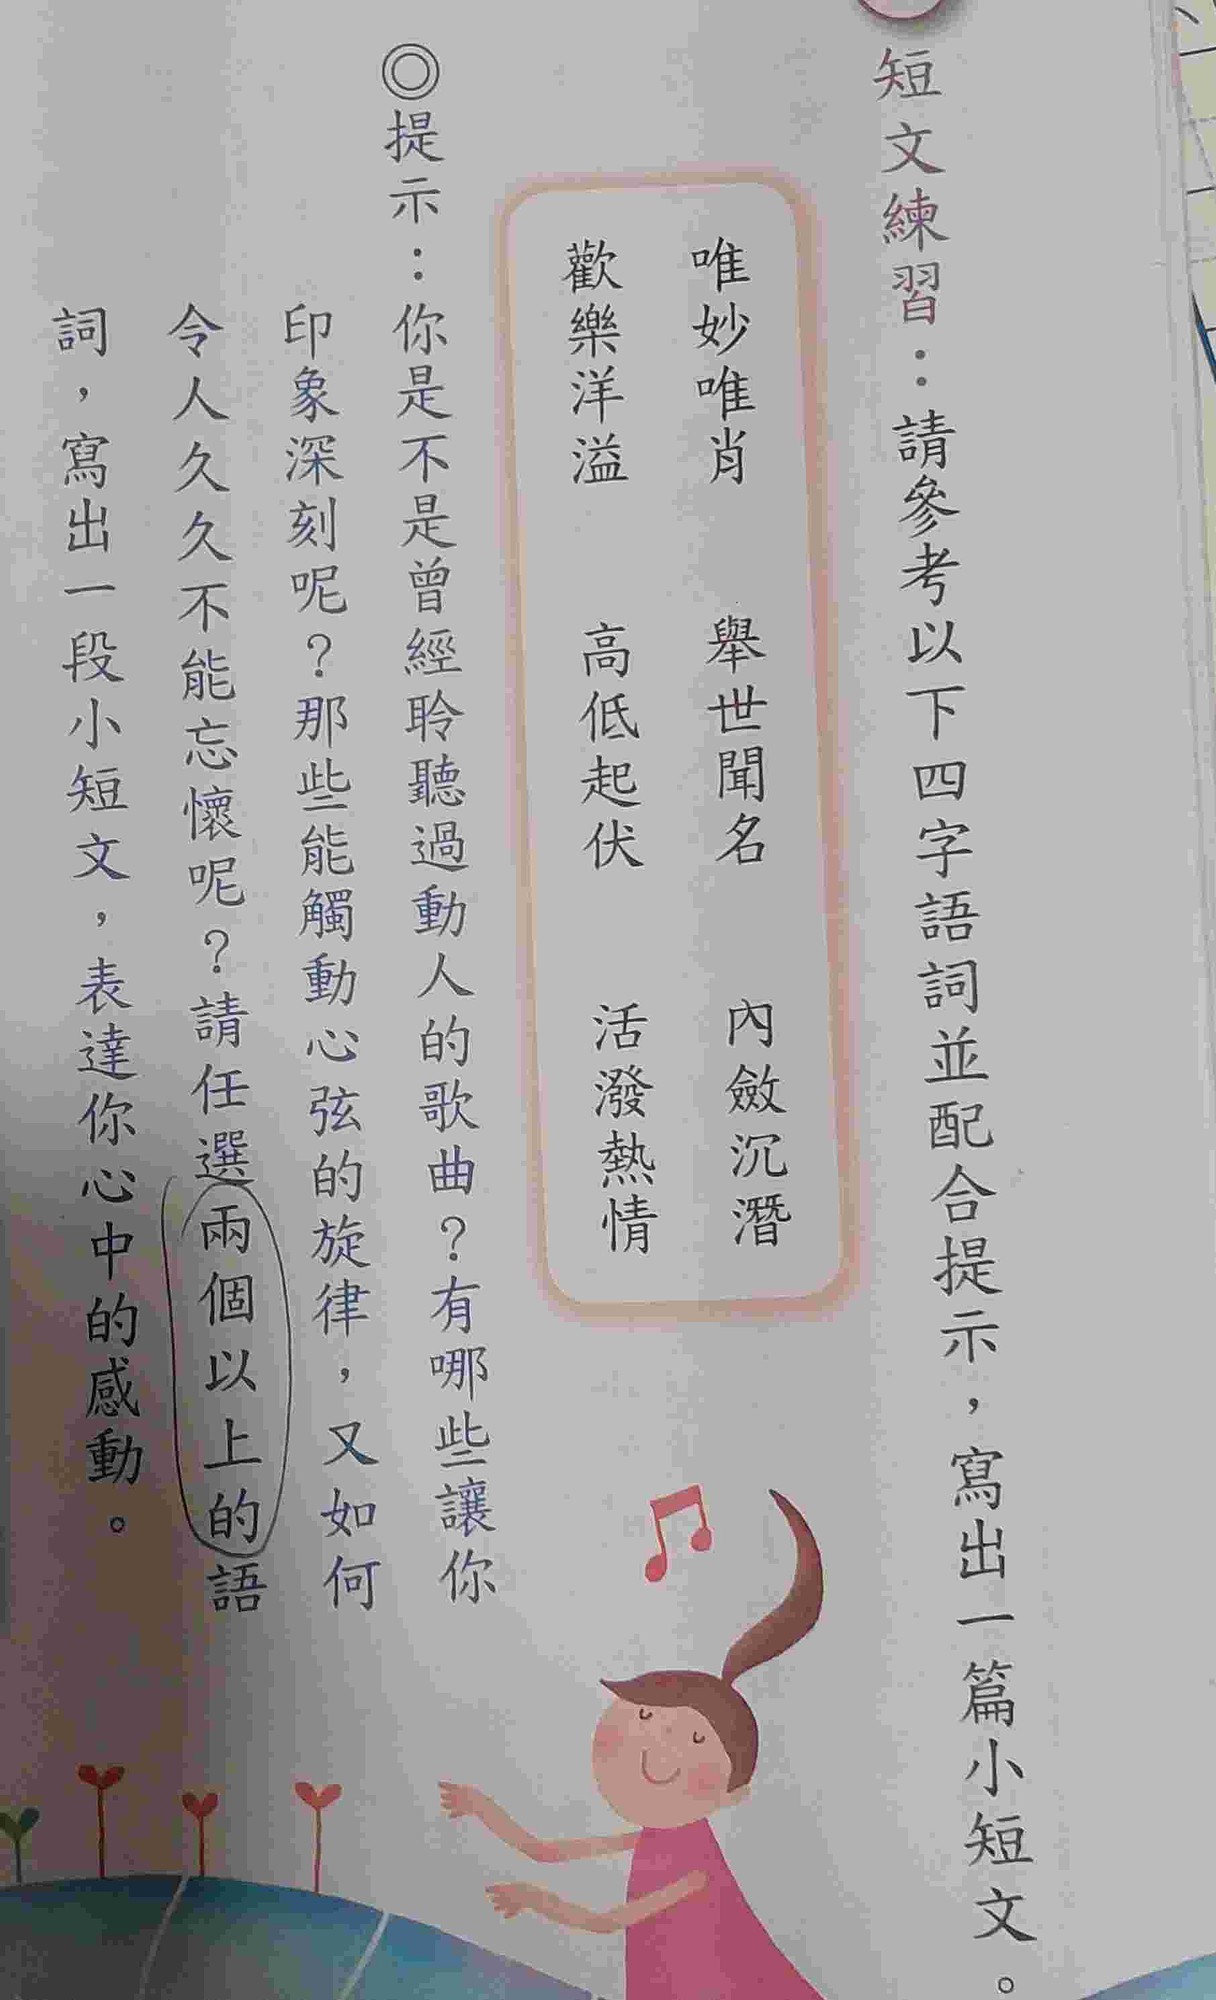 短文練習：請參考以下四字語詞並配合提示，寫出一篇小短文。
唯妙唯肖　舉世聞名　內斂沉潛
歡樂洋溢　高低起伏　活潑熱情
◎提示：你是不是曾經聆聽過動人的歌曲？有哪些讓你
印象深刻呢？那些能觸動心弦的旋律，又如何
令人久久不能忘懷呢？請任選兩個以上的語
詞，寫出一段小短文，表達你心中的感動。